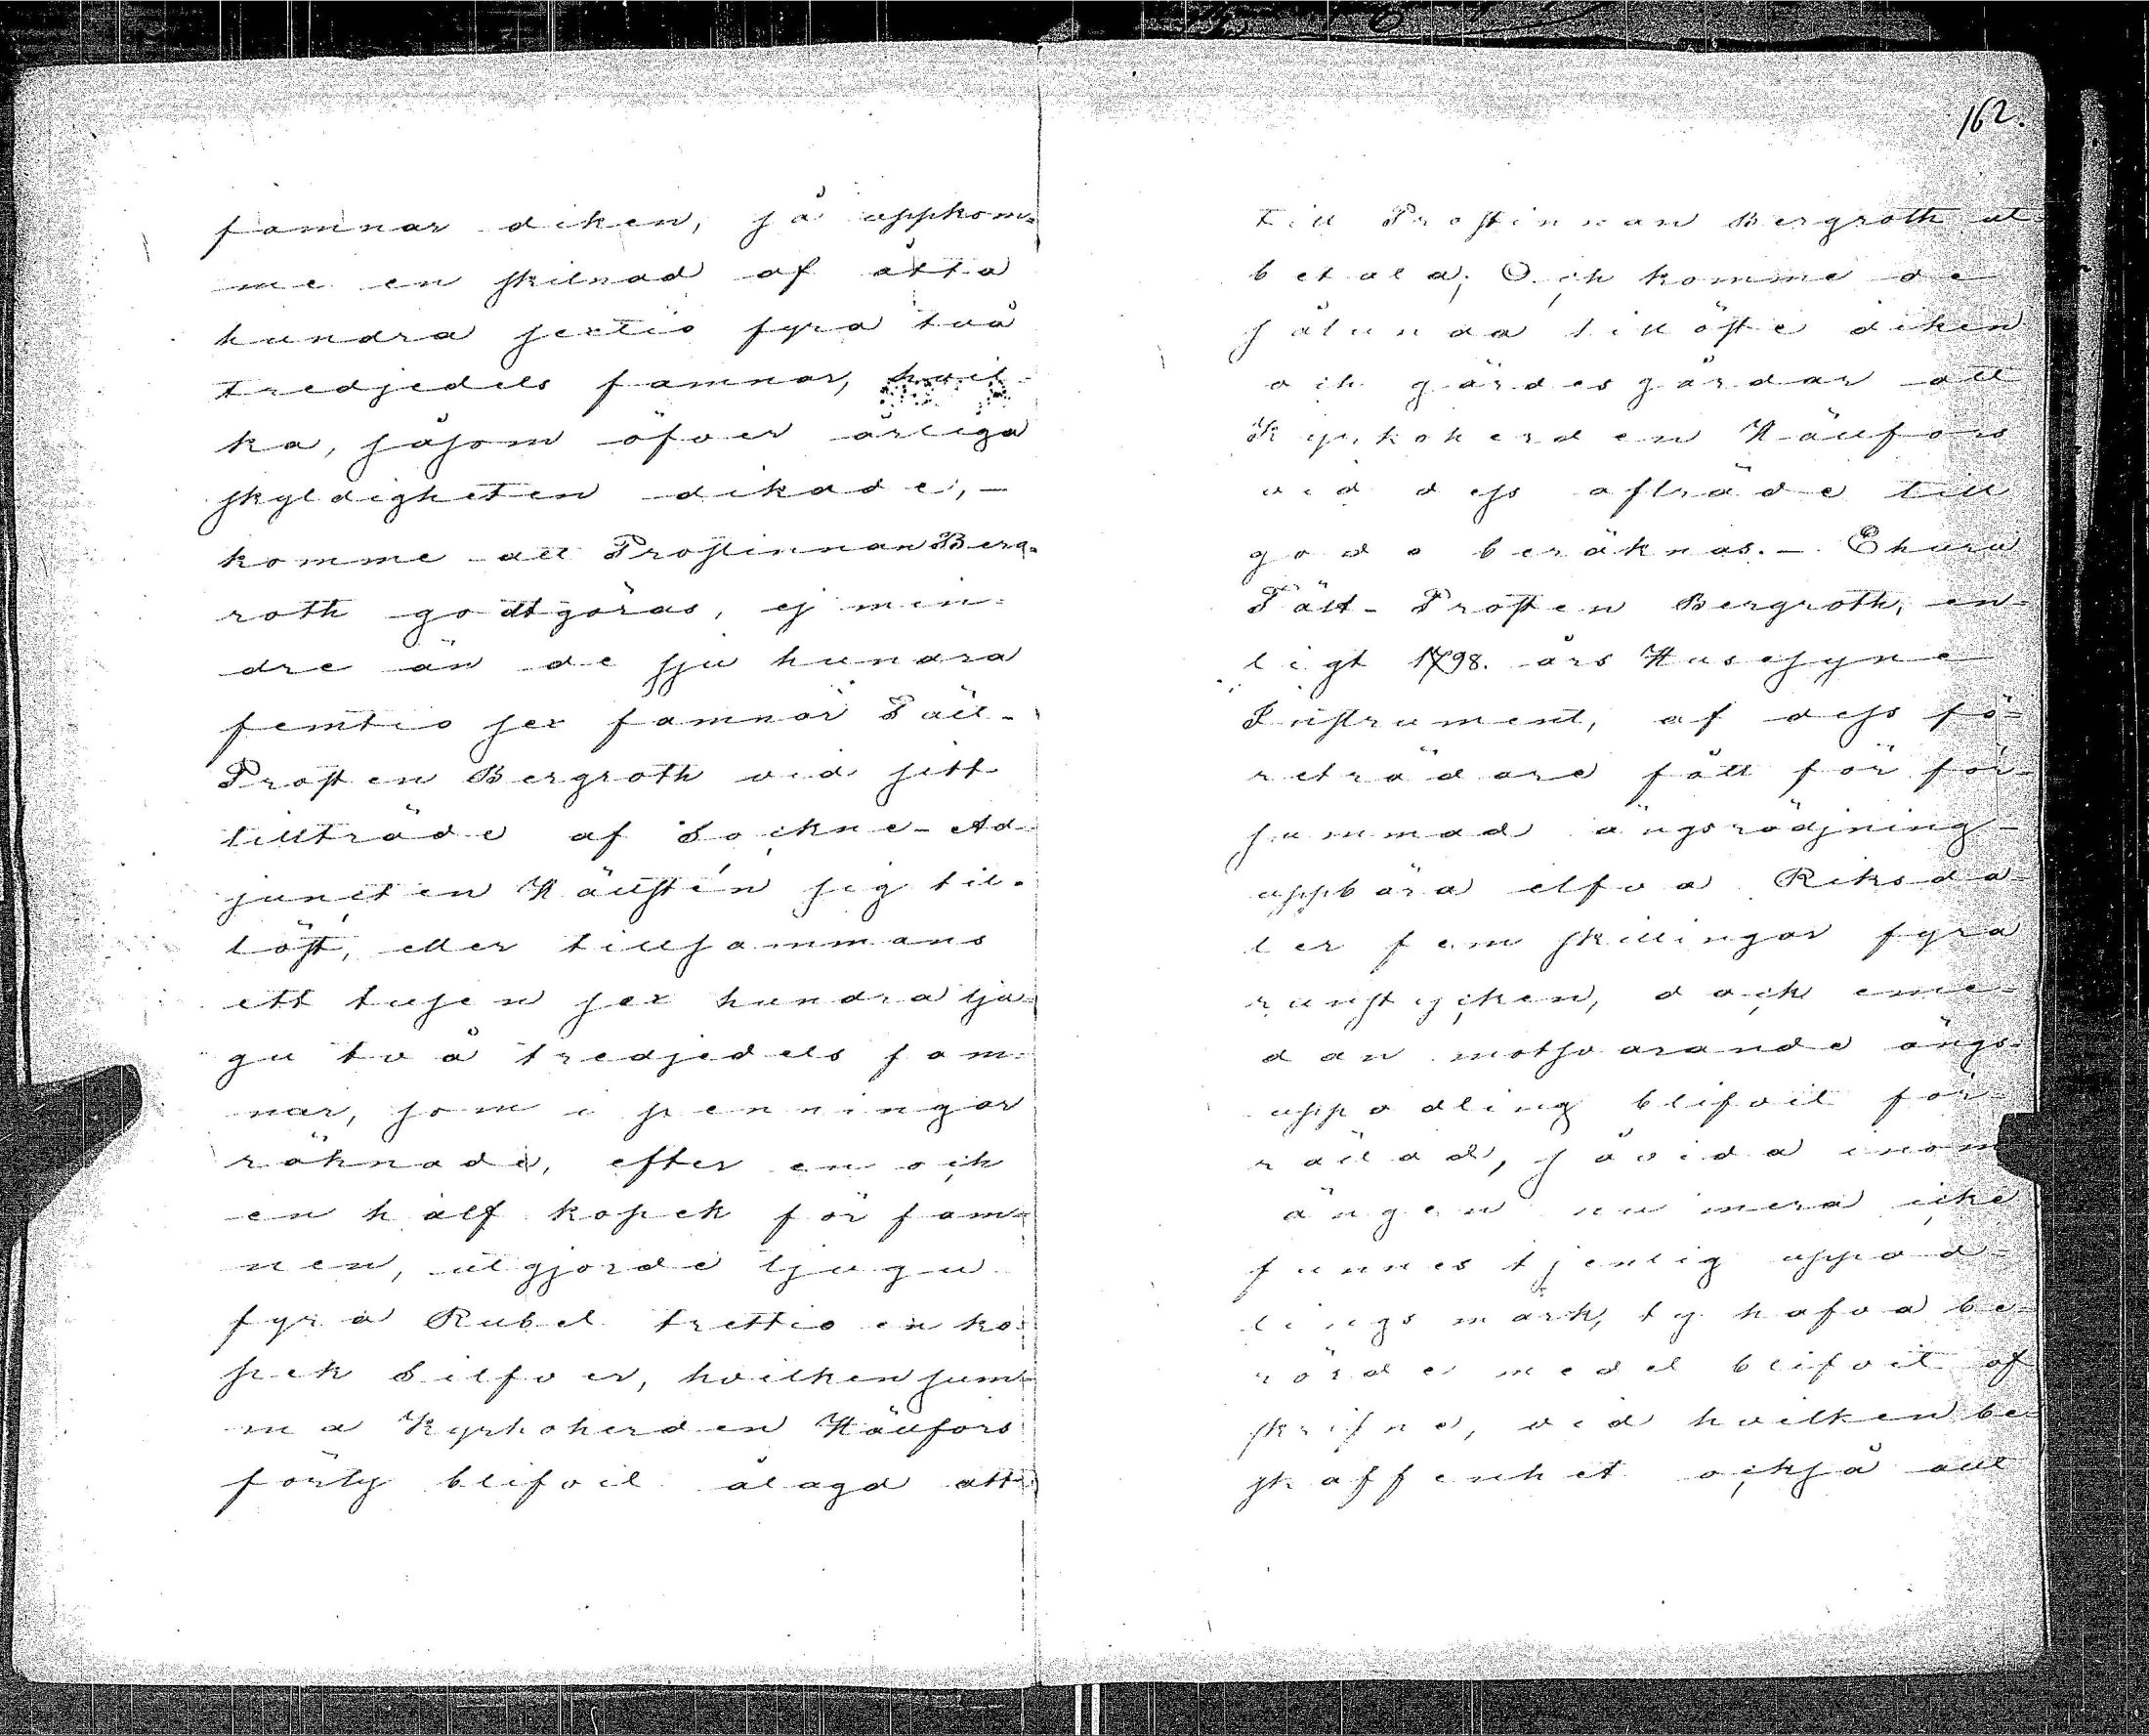 famnar diken, så uppkom-
me en skilnad af åtta
hundra sextio fyra två
tredjedels famnar, hvil-
ka, såsom öfver årliga
skyldigheten dikade, -
komme att Prostinnan Berg-
roth godtgöras, ej min-
dre än de sju hundra
femtio sex famnar Fält-
Prosten Bergroth vid sitt
tillträde af Sockne-Ad-
juncten Hällstén sig til-
löst, eller tillsammans
ett tusen sex hundra tju-
gu två tredjedels fam-
nar, som i penningar
räknade, efter en och
en half kopek för fam-
nen, utgjorde tjugu
fyra Rubel trettio en ko-
pek Silfver, hvilken sum-
ma Kyrkoherden Hällfors
förty blifvit ålagd att
162.
till Prostinnan Bergroth ut-
betala; Och komme de
sålunda tillöste diken
och gärdesgårdar att
Kyrkoherden Hällfors
vid dess afträde till
godo beräknas. - Ehuru
Fält-Prosten Bergroth, en-
ligt 1798. års Husesyne
Instrument, af dess fö-
reträdare fått för för-
summad ängsrödjning
uppbära elfva Riksda-
ler fem skillingar fyra
runstycken, dock eme-
dan motsvarande ängs-
uppodling blifvit för-
rättad, såvida inom
ängen nu mera icke
funnes tjenlig uppod-
lings mark, ty hafva be-
rörde medel blifvit af-
skrifne, vid hvilken be-
skaffenhet också all